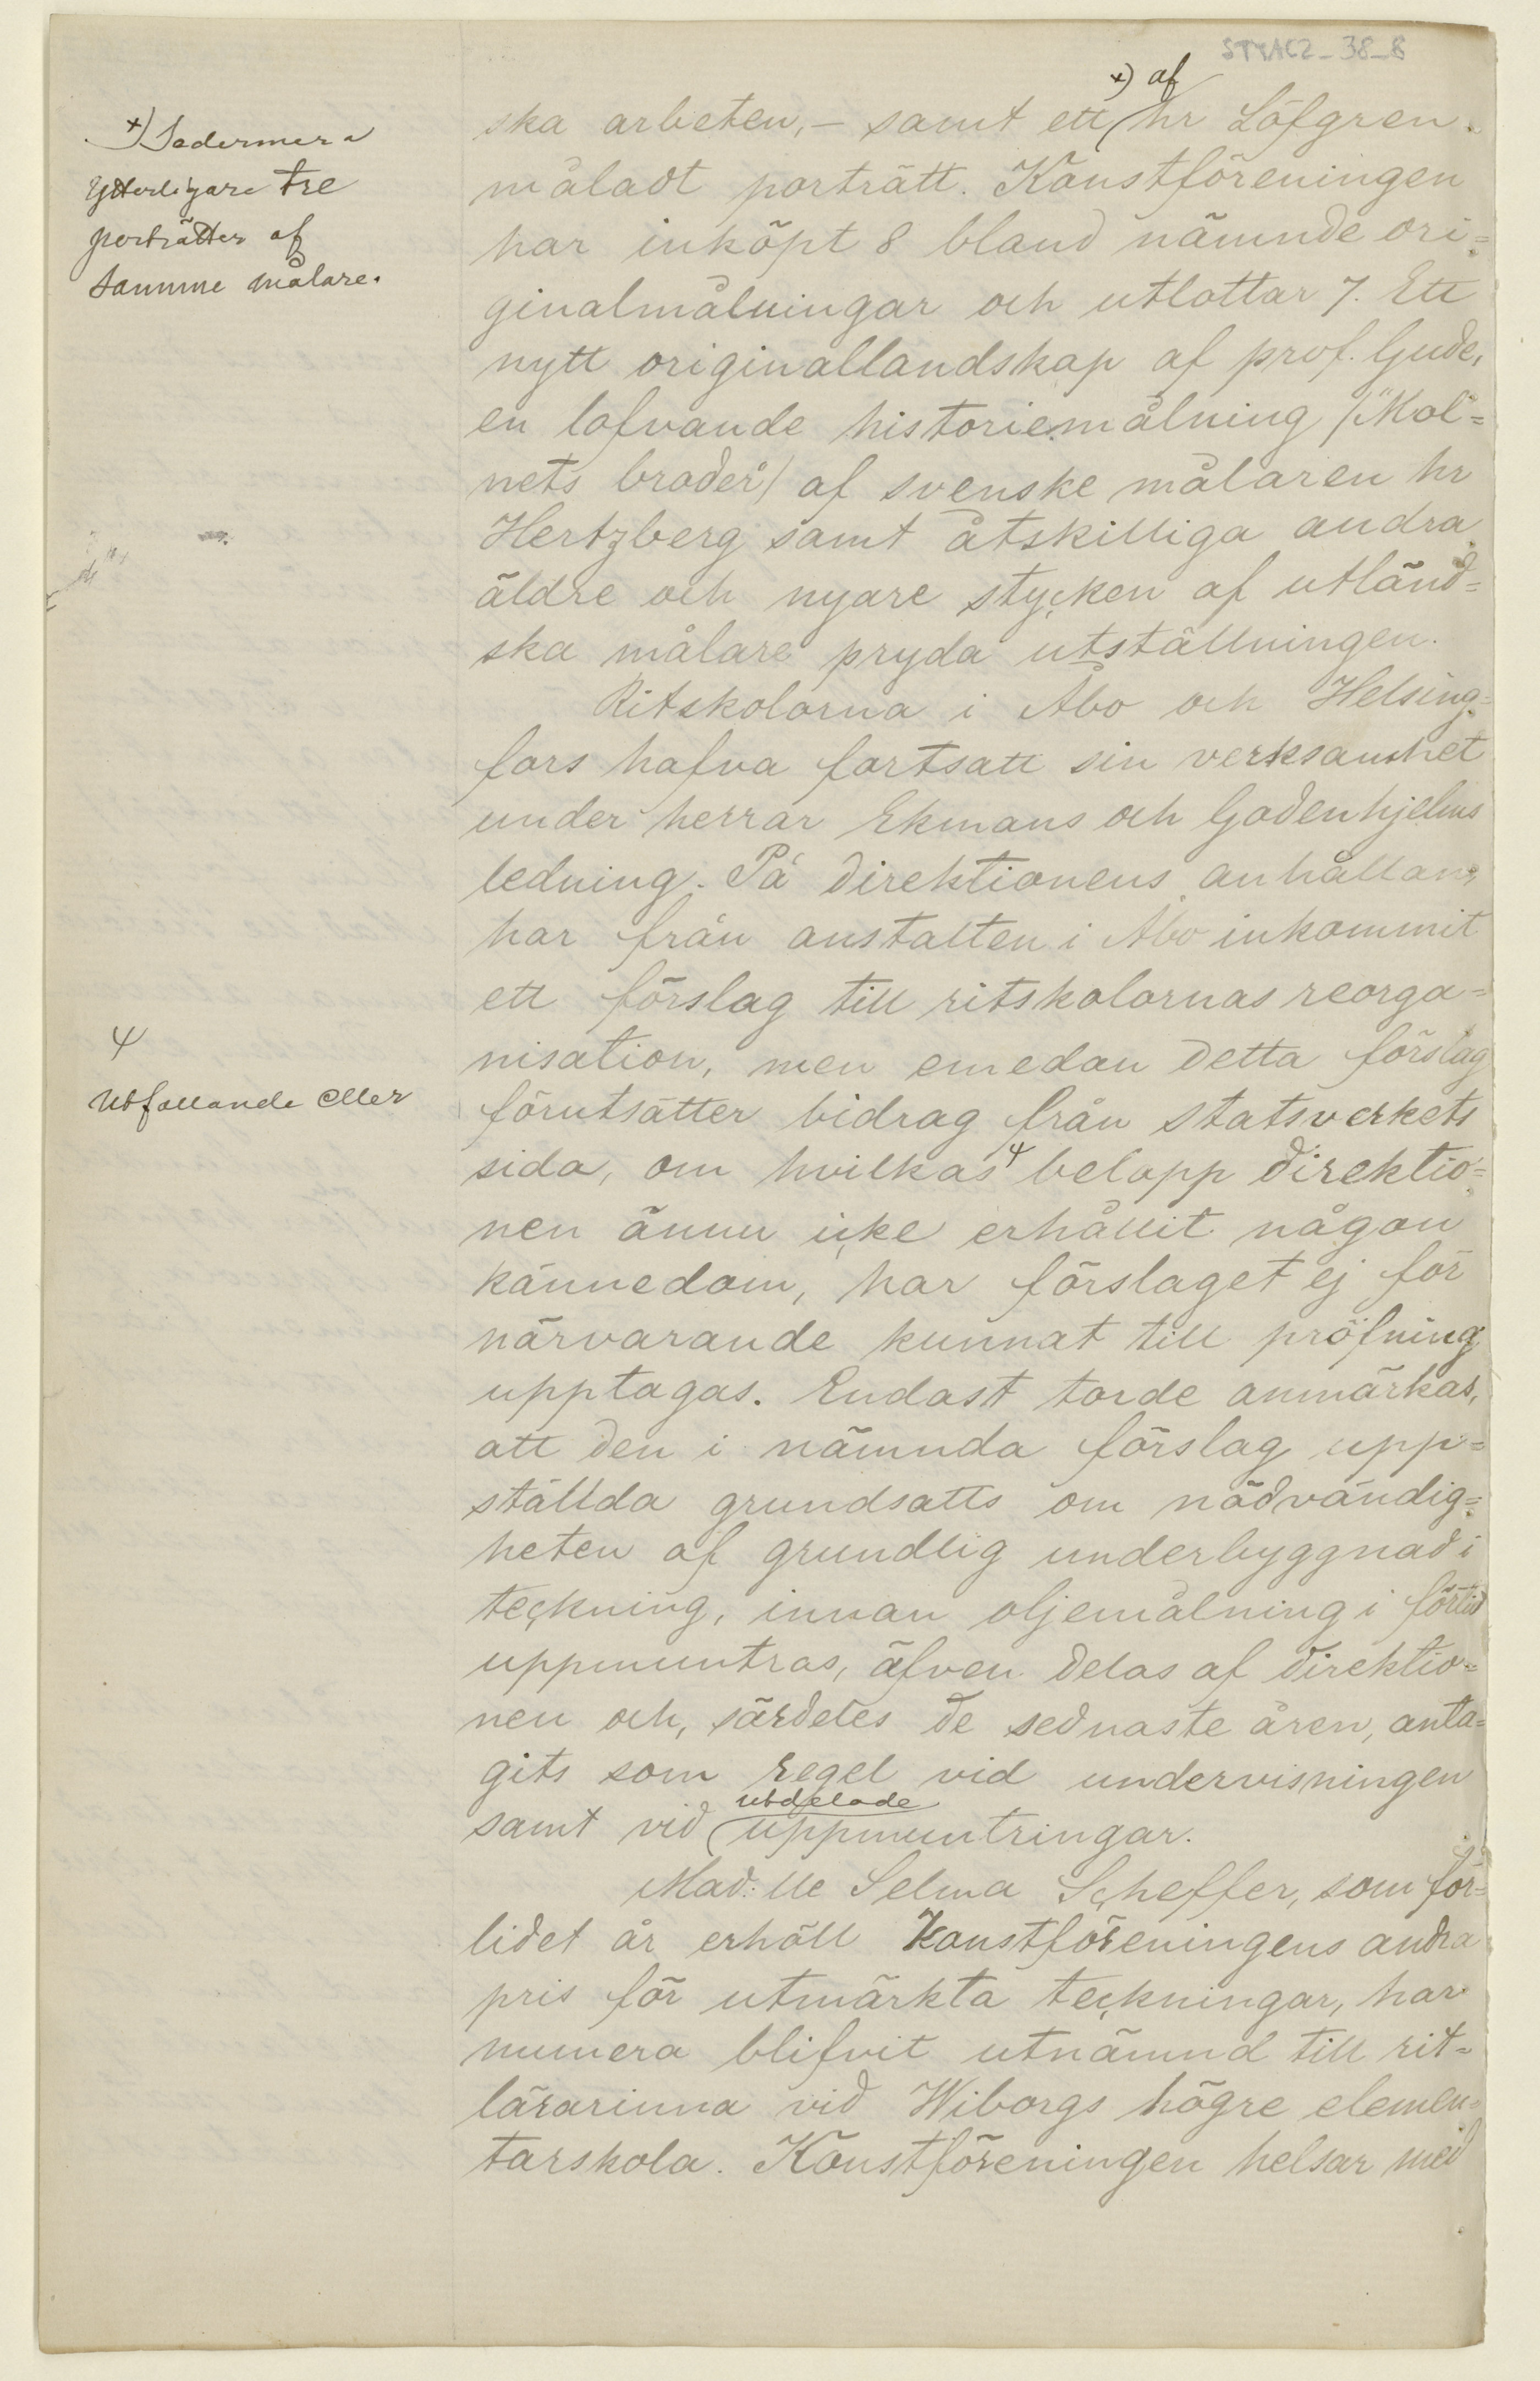 STYAC2_38_8
x) af
ska arbeten, – samt ett hr Löfgren
måladt porträtt. Konstföreningen
har inköpt 8 bland nämnde ori=
ginalmålningar och utlottar 7. Ett
nytt originallandskap af prof. Gude,
en lofvande historiemålning /"Mol=
nets broder"/ af svenske målaren hr
Hertzberg samt åtskilliga andra
äldre och nyare stycken af utländ=
ska målare pryda utställningen.
Ritskolorna i Åbo och Helsing=
fors hafva fortsatt sin verksamhet
under herrar Ekmans och Godenhjelms
ledning. På direktionens anhållan,
har från anstalten i Åbo inkommit
ett förslag till ritskolornas reorga=
nisation, men emedan detta förslag
förutsätter bidrag från statsverkets
sida, om hvilkas ψ belopp direktio=
nen ännu icke erhållit någon
kännedom, har förslaget ej för
närvarande kunnat till pröfning
upptagas. Endast torde anmärkas,
att den i nämnda förslag upp=
ställda grundsatts om nödvändig=
heten af grundlig underbyggnad i
teckning, innan oljemålning i förtid
uppmuntras, äfven delas af direktio=
nen och, särdeles de sednaste åren, anta=
gits som regel vid undervisningen
utdelade
samt vid uppmuntringar.
Mad:lle Selma Scheffer, som för=
lidet år erhöll Konstföreningens andra
pris för utmärkta teckningar, har
numera blifvit utnämnd till rit=
lärarinna vid Wiborgs högre elemen=
tarskola. Konstföreningen helsar med
x) Sedermera
ytterligare tre
porträtter af
samme målare.
ψ
utfallande eller